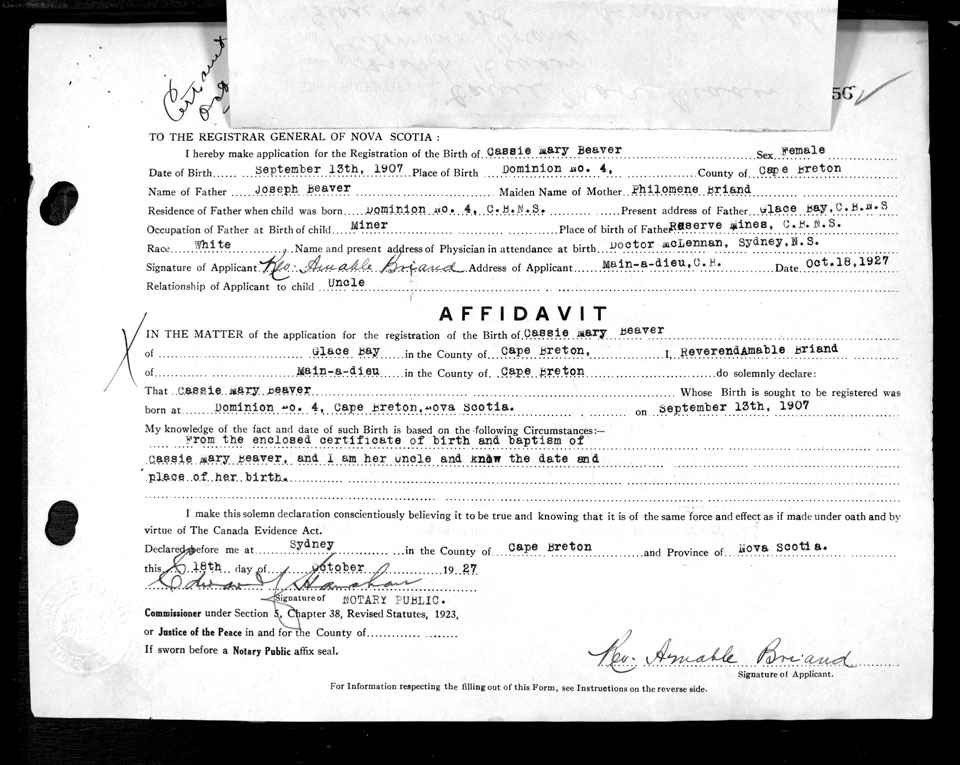 Cert
56
TO THE REGISTRAR GENERAL OF NOVA SCOTIA :
I hereby make application for the Registration of the Birth of Cassie Mary Beaver Sex Female
Date of Birth September 13th, 1907 Place of Birth Dominion No. 4, County of Cape Breton
Name of Father Joseph Beaver Maiden Name of Mother Philomene Briand
Residence of Father when child was born Dominion No. 4, C.B.N.S. Present address of Father Glace Bay, C.B.N.S
Occupation of Father at Birth of child Miner Place of birth of Father Reserve Mines, C.B.N.S.
Race White Name and present address of Physician in attendance at birth Doctor McLennan, Sydney, N.S.
Signature of Applicant Rev. Amable Briand Address of Applicant Main-a-dieu, C.B. Date Oct. 18, 1927
Relationship of Applicant to child Uncle
AFFIDAVIT
IN THE MATTER of the application for the registration of the Birth of Cassie Mary Beaver
of Glace Bay in the County of Cape Breton, I, Reverend Amable Briand
of Main-a-dieu in the County of Cape Breton do solemnly declare:
That Cassie Mary Beaver Whose Birth is sought to be registered was
born at Dominion No. 4, Cape Breton, Nova Scotia. on September 13th, 1907
My knowledge of the fact and date of such Birth is based on the following Circumstances:—
From the enclosed certificate of birth and baptism of
Cassie Mary Beaver, and I am her uncle and know the date and
place of her birth.
I make this solemn declaration conscientiously believing it to be true and knowing that it is of the same force and effect as if made under oath and by
virtue of The Canada Evidence Act.
Declared before me at Sydney in the County of Cape Breton and Province of Nova Scotia.
this 18th day of October 1927
Signature of NOTARY PUBLIC.
Commissioner under Section 5, Chapter 38, Revised Statutes, 1923,
or Justice of the Peace in and for the County of
If sworn before a Notary Public affix seal.
Rev. Amable Briand
Signature of Applicant.
For Information respecting the filling out of this Form, see Instructions on the reverse side.